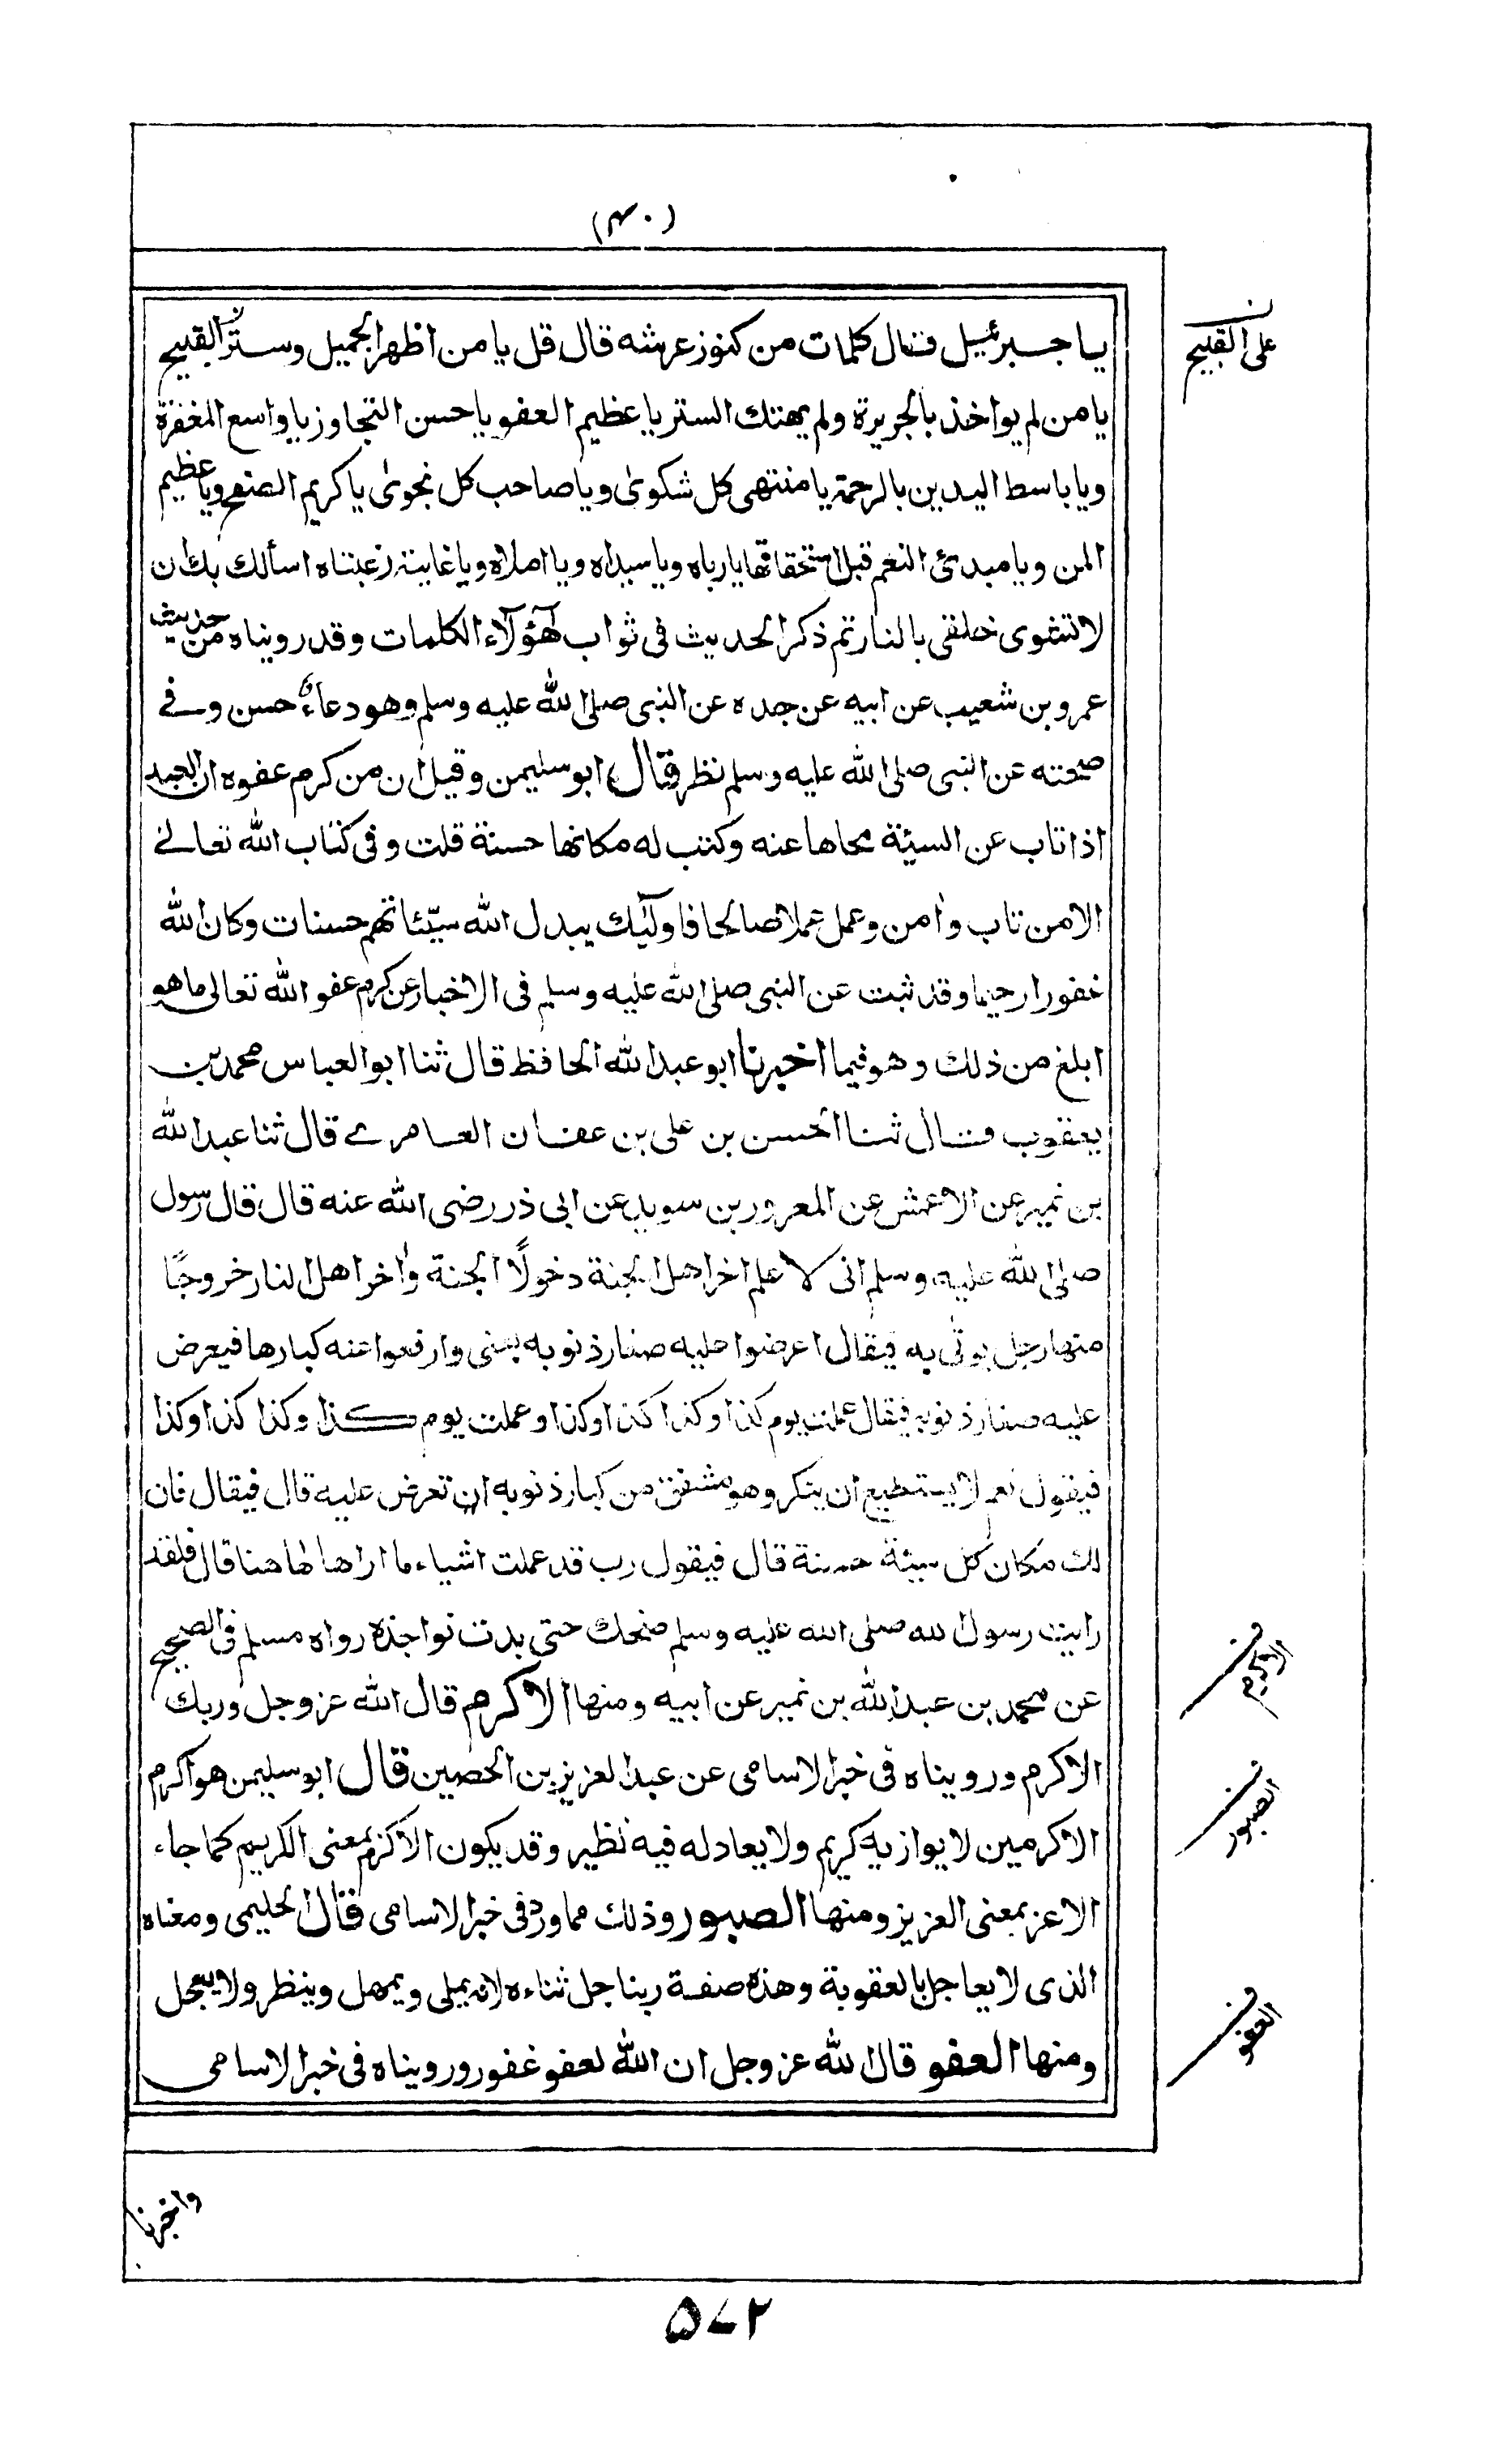 (٤٠)
يا جبرئيل فقال كلمات من كنوز عرشه قال قل يا من اظهر الجميل وستر القبيح
على القبيح
يا من لم يواخذ بالجريرة ولم يهتك الستر يا عظيم العفو يا حسن التجاوز يا واسع المغفرة
ويا باسط اليدين بالرحمة يا منتهى كل شكوىٰ ويا صاحب كل نجوىٰ يا كريم الصفح ويا عظيم
المن ويا مبدئ النعم قبل استحقاقها يا رباه ويا سيداه ويا املاه ويا غاية رغبتاه اسألك بك ان
لا تشوى خلقى بالنار ثم ذكر الحديث فى ثواب هٓؤلآء الكلمات وقد رويناه من حديث
عمرو بن شعيب عن ابيه عن جده عن النبى صلى الله عليه وسلم وهو دعاء حسن وفے
صحته عن النبى صلى الله عليه وسلم نظر قال ابو سليمن وقيل ان من كرم عفوه ان العبد
اذا تاب عن السيئة محاها عنه وكتب له مكانها حسنة قلت وفى كتاب الله تعالے
الا من تاب واٰمن وعمل عملا صالحا فاولٓئك يبدل الله سيّئاتهم حسنات وكان الله
غفورا رحيما وقد ثبت عن النبى صلى الله عليه وسلم فى الاخبار عن كرم عفو الله تعالى ما هو
ابلغ من ذلك وهو فيما اخبرنا ابو عبد الله الحافظ قال ثنا ابو العباس محمد بن
يعقوب قال ثنا الحسن بن على بن عفان العامرے قال ثنا عبد الله
بن نمير عن الاعمش عن المعرور بن سويد عن ابى ذر رضى الله عنه قال قال رسول
صلى الله عليه وسلم انى لاعلم اخر اهل الجنة دخولًا الجنة واٰخر اهل النار خروجًا
منها رجل يوتٰى به فيقال اعرضوا عليه صغار ذنوبه يعنى وارفعوا عنه كبارها فيعرض
عليه صغار ذنوبه فيقال عملت يوم كذا وكذا كذا وكذا وعملت يوم كذا وكذا كذا وكذا
فيقول نعم لا يستطيع ان ينكر وهو مشفق من كبار ذنوبه ان تعرض عليه قال فيقال فان
لك مكان كل سيئة حسنة قال فيقول رب قد عملت اشياء ما اراها هاهنا قال فلقد
رايت رسول الله صلى الله عليه وسلم ضحك حتى بدت نواجذه رواه مسلم فى الصحيح
عن محمد بن عبد الله بن نمير عن ابيه ومنها الاكرم قال الله عز وجل وربك
الاكرم
الاكرم ورويناه فى خبر الاسامى عن عبد العزيز بن الحصين قال ابو سليمن هو اكرم
الاكرمين لا يوازيه كريم ولا يعادله فيه نظير وقد يكون الاكرم بمعنى الكريم كما جاء
الصبور
الاعز بمعنى العزيز ومنها الصبور وذلك مما ورد فى خبر الاسامى قال الحليمى ومعناه
الذى لا يعاجل بالعقوبة وهذه صفة ربنا جل ثناءه لانه يملى ويمهل وينظر ولا يعجل
ومنها العفو قال الله عز وجل ان الله لعفو غفور ورويناه فى خبر الاسامى
العفو
واخبرنا
۵۷۲